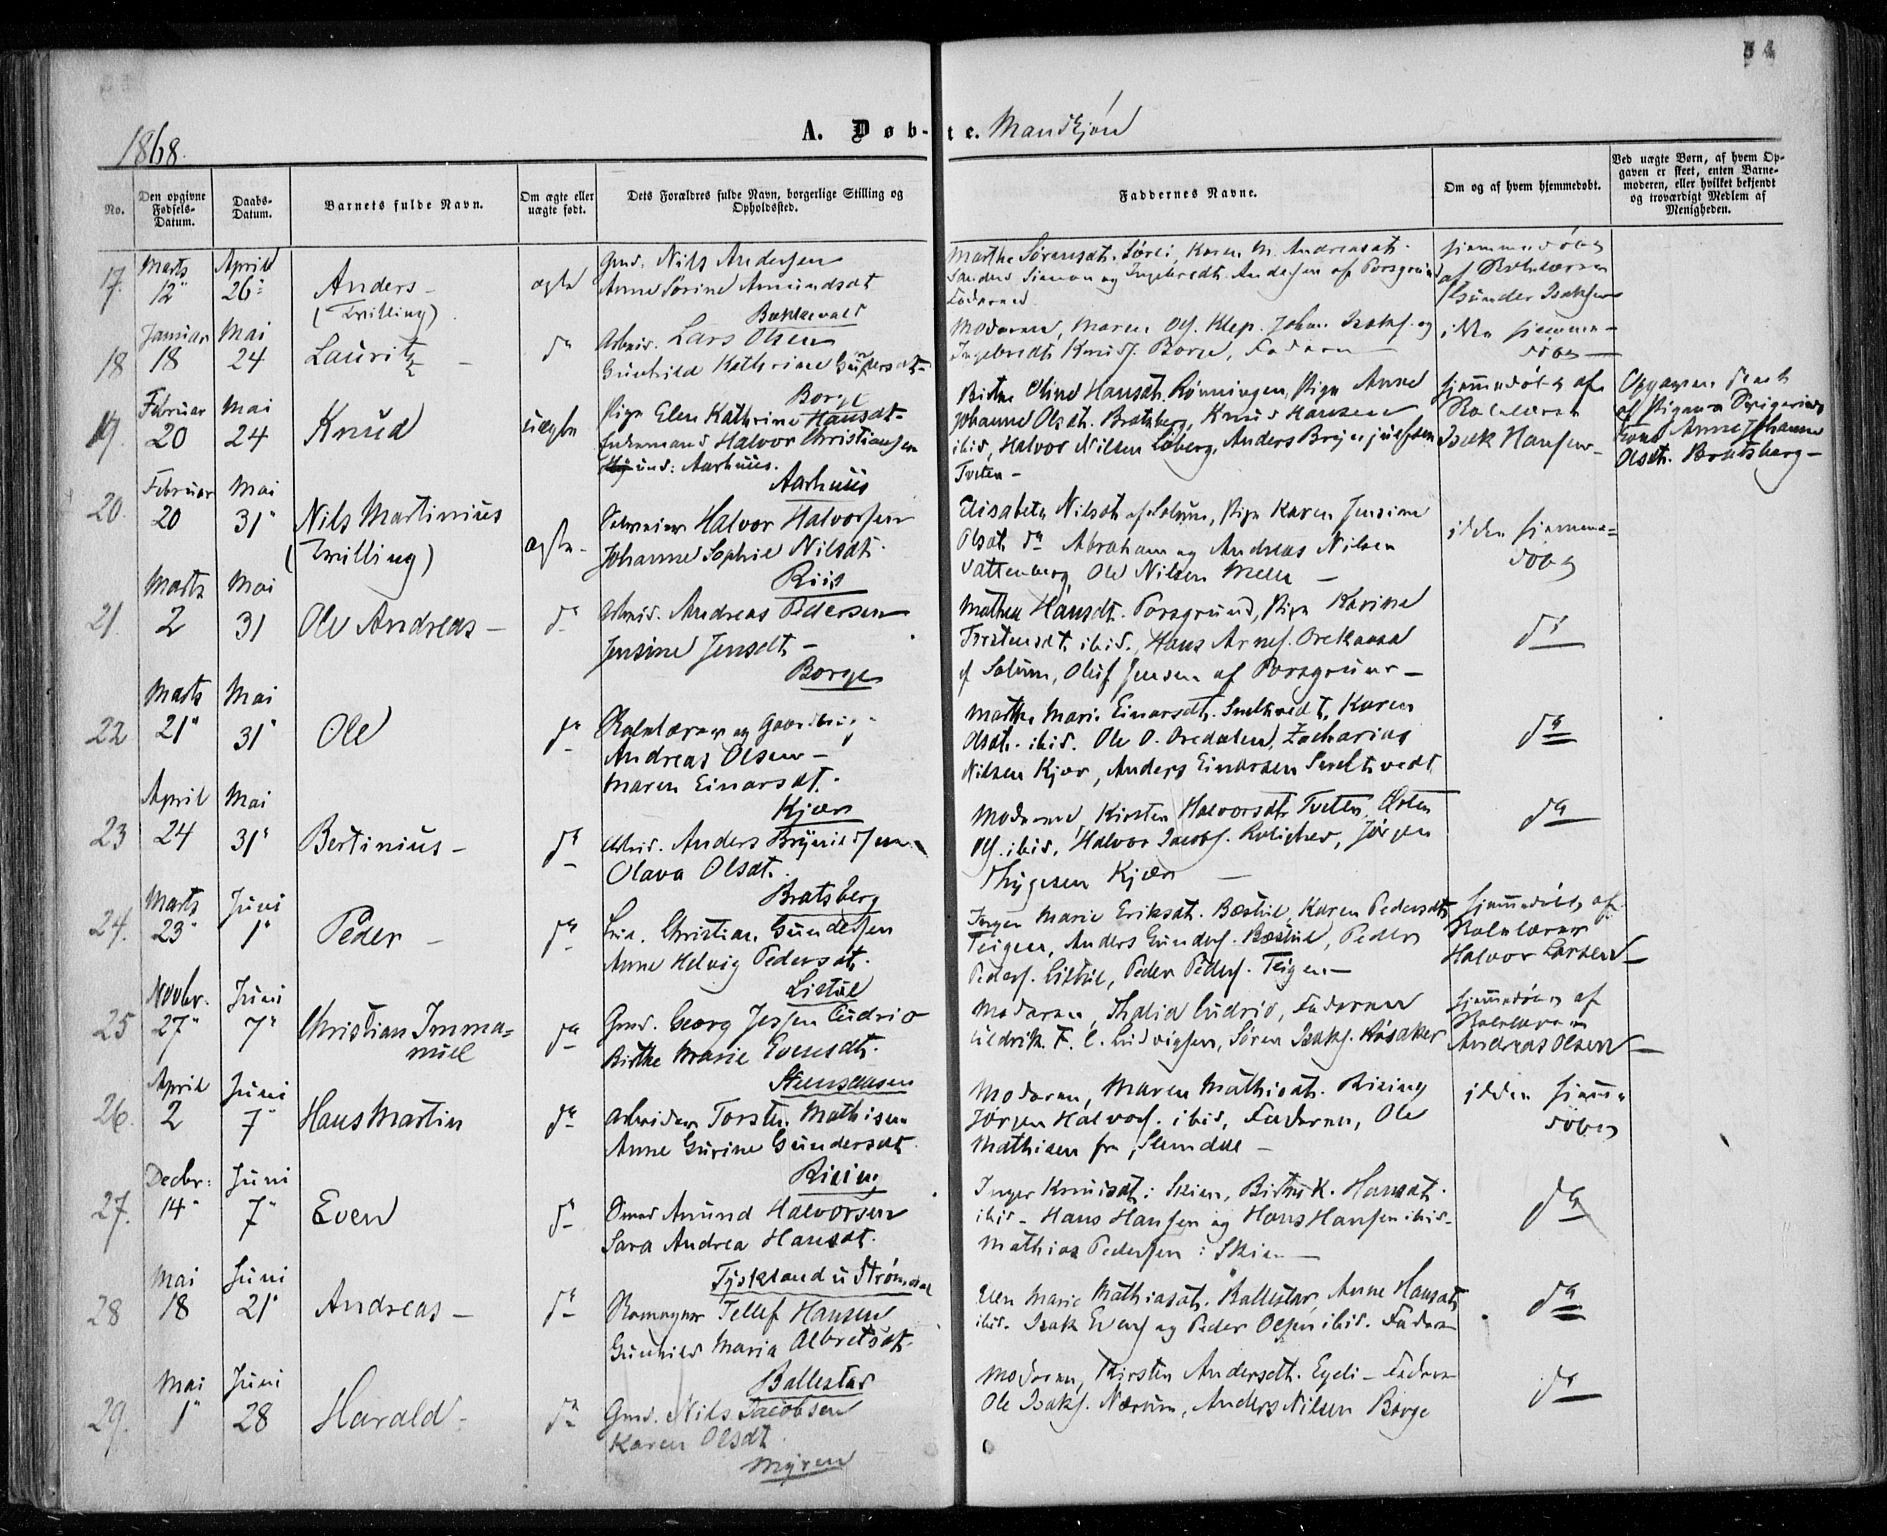 54
1868.
A. Døb-te. Mandkjøn
No.
Den opgivne Fødsels-Datum.
Daabs-Datum.
Barnets fulde Navn.
Om ægte eller uægte født.
Dets Forældres fulde Navn, borgerlige Stilling og Opholdssted.
Faddernes Navne.
Om og af hvem hjemmedøbt.
Ved uægte Børn, af hvem Opgaven er skeet, enten Barnemoderen, eller hvilket bekjendt og troværdigt Medlem af Menigheden.
17. Marts 12" April 26" Anders - (Tvilling). ægte
Gmd. Nils Andersen
Anne Sørine Amundsdt
Bakkevold
Marthe Sørensdt. Sørli, Karen M. Andreasdt.
Sanders Simon og Ingebregt Andersen af Porsgrund
Faderen
hjemmedøbt
af Skolelærer
Gunder Isaksen
18 Januar 18 Mai 24 Lauritz - do
Arbeid. Lars Olsen
Gunhild Kathrine Gundersdt -
Borge
Moderen, Maren Ols. Klep, Johan Isaks. og
Ingebregt Knuds. Borge, Faderen
ikke hjemme-
døbt -
19. Februar 20 Mai 24 Knud uægte
Pige Elen Kathrine Hansdt -
Enkemand Halvor Christiansen
und: Aarhuus.
Aarhuus
Birthe Oline Hansdt. Rønningen, Pige Anne
Johanne Olsdt. Bratsberg, Knud Hansen
ibid, Halvor Nilsen Løberg, Anders Brynjulfsen
Tveten -
hjemmedøbt af
Skolelærer
Isak Hansen -
Opgaven skeet
af Pigens Svigerinde
Kone Anne Johanne
Olsdt. Bratsberg -
20. Februar 20 Mai 31" Nils Martinius (Tvilling) ægte -
Halvor Halvorsen
Johanne Sophie Nilsdt.
Riis
Elisabeth Nilsdt af Solum, Pige Karen Jensine
Olsdt. do Abraham og Andreas Nilsen
Vattenberg, Ole Nilsen Melle -
ikke hjemme=
døbt
21. Marts 2 Mai 31 Ole Andreas - do
Arbeid. Andreas Pedersen
Jensine Jensdt -
Borge
Mathea Hansdt. Porsgrund, Pige Karine
Torstensdt ibid., Hans Arnes. Orekaasa
af Solum, Oluf Jensen af Porsgrund -
do
22 Marts 21" Mai 31" Ole do
Skolelærer og Gaardbr.
Andreas Olsen -
Maren Einarsdt.
Kjær
Marthe Marie Einarsdt. Smeltvedt, Karen
Olsdt. ibid. Ole O. Oredalen, Zacharias
Nilsen Kjær, Anders Einarsen Smeltvedt
do
23 April 24 Mai 31" Bertinius - do
Arbeid. Anders Brynildsen
Olava Olsdt.
Bratsberg
Moderen, Kirsten Halvorsdt Tveten, Østen
Ols. ibid, Halvor Jacobs. Rolighed, Jørgen
Thygesen Kjær -
do
24. Marts 23" Juni 1" Peder - do
Christian Gundersen
Anne Helvig Pedersdt.
Listul
Inger Marie Eriksdt. Bøstul, Karen Pedersdt
Teigen, Anders Gunders. Bøstul, Peder
Peders. Listul, Peder Peders. Teigen -
hjemmedøbt af
Skolelærer
Halvor Larsen -
25 Novbr. 27" Juni 7" Christian Imma=nuel do
Gmd. Georg Jessen Cudrio
Birthe Marie Evensdt.
Stensaasen
Moderen, Thalia Cudrio, Faderen
Cudrik. F. C. Ludvigsen, Søren Isaks. Røsaker
hjemmedøbt af
Skolelærer
Andreas Olsen -
26. April 2 Juni 7 Hans Martin do
Arbeider Torsten Mathisen
Anne Gurine Gundersdt
Rising
Moderen, Maren Mathisdt. Rising
Jørgen Halvors. ibid, Faderen, Ole
Mathisen fra Slemdal -
ikke hjemme
døbt
27. Decbr. 14" Juni 7" Even do
Gmd Amund Halvorsen
Sara Andrea Hansdt.
Tyskland u Strømdal
Inger Knudsdt i Skien, Birthe K. Hansdt.
ibid - Hans Hansen og Hans Hansen ibid -
Mathias Pedersen i Skien -
do
28 Mai 18 Juni 21" Andreas - do
Skomager Tellef Hansen
Gunhild Maria Albretsdt.
Ballestad
Elen Marie Mathiasdt. Ballestad, Anne Hansdt
ibid. Isak Evens og Peder Olsen ibid. Faderen
do
29. Mai 1" Juni 28 Harald - do
Gmd. Nils Jacobsen
Karen Olsdt.
Myren
Moderen, Kirsten Andersdt. Eydi - Faderen
Ole Isaks. Nærum, Anders Nilsen Borge
do